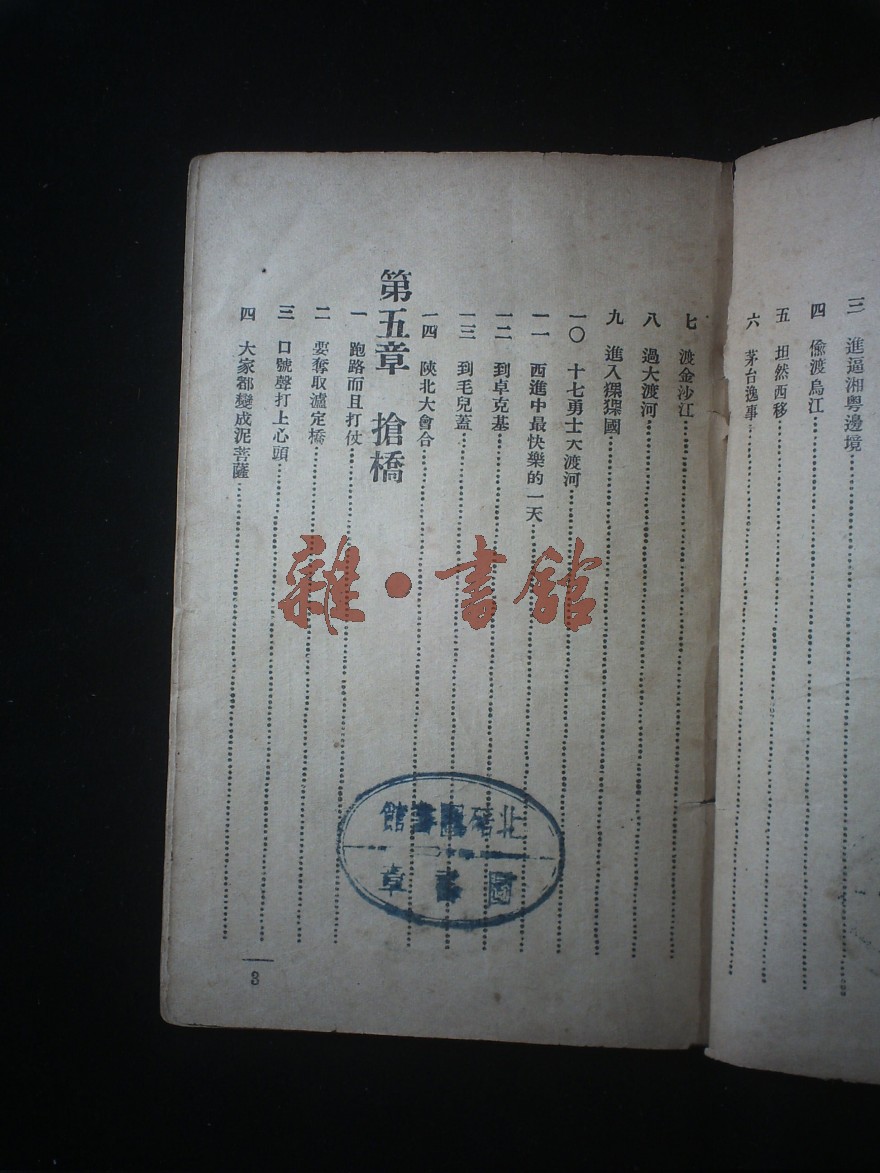 三 進逼湘粤邊境
四 偸渡烏江
五 坦然西移
六 茅台逸事
七 渡金沙江
八 過大渡河
九 進入猓猓國
一〇 十七勇士大渡河
一一 西進中最快樂的一天
一二 到卓克基
一三 到毛兒蓋
一四 陝北大會合
第五章 搶橋
一 跑路而且打仗
二 要奪取瀘定橋
三 口號聲打上心頭
四 大家都變成泥菩薩
3
雜·書館
北碚圖書館
圖書章